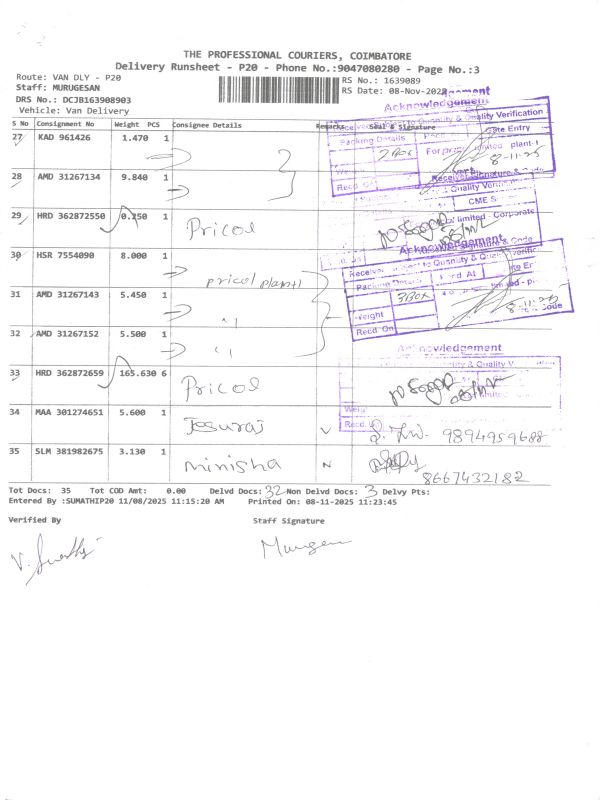 THE PROFESSIONAL COURIERS, COIMBATORE
Delivery Runsheet - P20 - Phone No.:9047080280 - Page No.:3
Route: VAN DLY - P20
RS No.: 1639089
Staff: MURUGESAN
RS Date: 08-Nov-2025
DRS No.: DCJB163908903
Vehicle: Van Delivery
S No Consignment No Weight PCS Consignee Details Remarks Seal & Signature
27 KAD 961426 1.470 1
28 AMD 31267134 9.840 1
29 HRD 362872550 0.250 1 Pricol
30 HSR 7554090 8.000 1 pricol plant-1
31 AMD 31267143 5.450 1 "
32 AMD 31267152 5.500 1 "
33 HRD 362872659 165.630 6 Pricol
34 MAA 301274651 5.600 1 Jesuraj 9894959688
35 SLM 381982675 3.130 1 minisha 8667432182
Acknowledgement
Quality Verification
Packing Details
Gate Entry
2 Box
8-11-25
Recd. On
CME S
limited - Corporate
Acknowledgement
Packing Details
3 Box
Weight
Recd. On
8-11-25
Acknowledgement
Tot Docs: 35 Tot COD Amt: 0.00 Delvd Docs: 32 Non Delvd Docs: 3 Delvy Pts:
Entered By :SUMATHIP20 11/08/2025 11:15:20 AM Printed On: 08-11-2025 11:23:45
Verified By Staff Signature